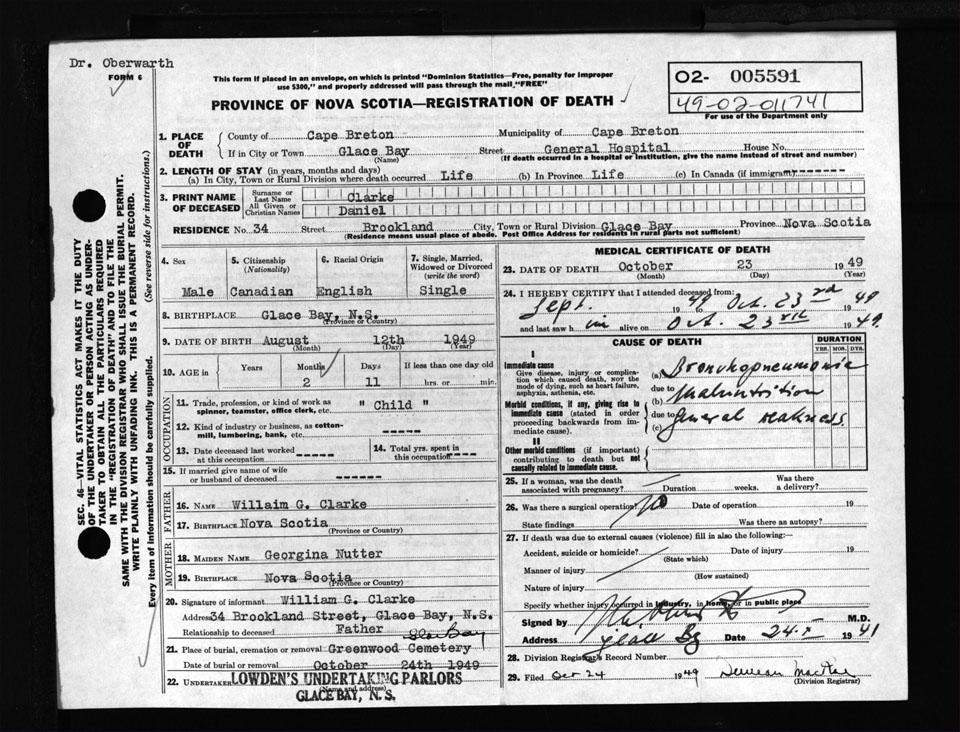 Dr. Oberwarth
FORM 6
This form if placed in an envelope, on which is printed "Dominion Statistics—Free, penalty for improper
use $300," and properly addressed will pass through the mail, "FREE"
PROVINCE OF NOVA SCOTIA—REGISTRATION OF DEATH
02- 005591
49-02-011741
For use of the Department only
SEC. 46—VITAL STATISTICS ACT MAKES IT THE DUTY
OF THE UNDERTAKER OR PERSON ACTING AS UNDER-
TAKER TO OBTAIN ALL THE PARTICULARS REQUIRED
IN THE "REGISTRATION OF DEATH" AND TO FILE THE
SAME WITH THE DIVISION REGISTRAR WHO SHALL ISSUE THE BURIAL PERMIT.
WRITE PLAINLY WITH UNFADING INK. THIS IS A PERMANENT RECORD.
Every item of information should be carefully supplied. (See reverse side for instructions.)
1. PLACE OF DEATH County of Cape Breton Municipality of Cape Breton
If in City or Town Glace Bay Street General Hospital House No.
(Name) (If death occurred in a hospital or institution, give the name instead of street and number)
2. LENGTH OF STAY (in years, months and days)
(a) In City, Town or Rural Division where death occurred Life (b) In Province Life (c) In Canada (if immigrant) ------
3. PRINT NAME OF DECEASED Surname or Last Name Clarke
All Given or Christian Names Daniel
RESIDENCE No. 34 Street Brookland City, Town or Rural Division Glace Bay Province Nova Scotia
(Residence means usual place of abode. Post Office Address for residents in rural parts not sufficient)
4. Sex 5. Citizenship (Nationality) 6. Racial Origin 7. Single, Married, Widowed or Divorced (write the word)
Male Canadian English Single
8. BIRTHPLACE Glace Bay, N.S.
(Province or Country)
9. DATE OF BIRTH August 12th 1949
(Month) (Day) (Year)
10. AGE in Years Months Days If less than one day old
2 11 hrs. or min.
OCCUPATION
11. Trade, profession, or kind of work as
spinner, teamster, office clerk, etc. " Child "
12. Kind of industry or business, as cotton-
mill, lumbering, bank, etc. -----
13. Date deceased last worked at this occupation ------ 14. Total yrs. spent in this occupation -----
15. If married give name of wife
or husband of deceased ------
FATHER
16. NAME Willaim G. Clarke
17. BIRTHPLACE Nova Scotia
(Province or Country)
MOTHER
18. MAIDEN NAME Georgina Nutter
19. BIRTHPLACE Nova Scotia
(Province or Country)
20. Signature of informant William G. Clarke
Address 34 Brookland Street, Glace Bay, N.S.
Relationship to deceased Father
Glace Bay
21. Place of burial, cremation or removal Greenwood Cemetery
Date of burial or removal October 24th 1949
22. UNDERTAKER LOWDEN'S UNDERTAKING PARLORS
(Name and address)
GLACE BAY, N. S.
MEDICAL CERTIFICATE OF DEATH
23. DATE OF DEATH October 23 1949
(Month) (Day) (Year)
24. I HEREBY CERTIFY that I attended deceased from:
Sept. 1949 Oct. 23rd 1949
and last saw him alive on Oct. 23rd 1949.
CAUSE OF DEATH DURATION
YRS. MOS. DYS.
I
Immediate cause
Give disease, injury or complica-
tion which caused death, NOT the
mode of dying, such as heart failure,
asphyxia, asthenia, etc.
(a) Bronchopneumonia
due to
Morbid conditions, if any, giving rise to
immediate cause (stated in order
proceeding backwards from im-
mediate cause).
(b) Malnutrition
due to
(c) General weakness.
II
Other morbid conditions (if important)
contributing to death but not
causally related to immediate cause.
25. If a woman, was the death
associated with pregnancy? Duration weeks. Was there a delivery?
26. Was there a surgical operation? No Date of operation 19
State findings Was there an autopsy?
27. If death was due to external causes (violence) fill in also the following:—
Accident, suicide or homicide? Date of injury 19
(State which)
Manner of injury
(How sustained)
Nature of injury
Specify whether injury occurred in industry, in home, or in public place
Signed by M.D.
Address Glace Bay Date 24-X 1941
28. Division Registrar's Record Number
29. Filed Oct 24 1949
(Division Registrar)